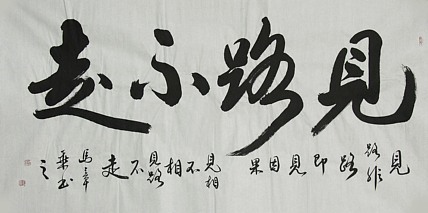 見路不走
見路非路即見因果見相不相見路不走
馬章乘書之